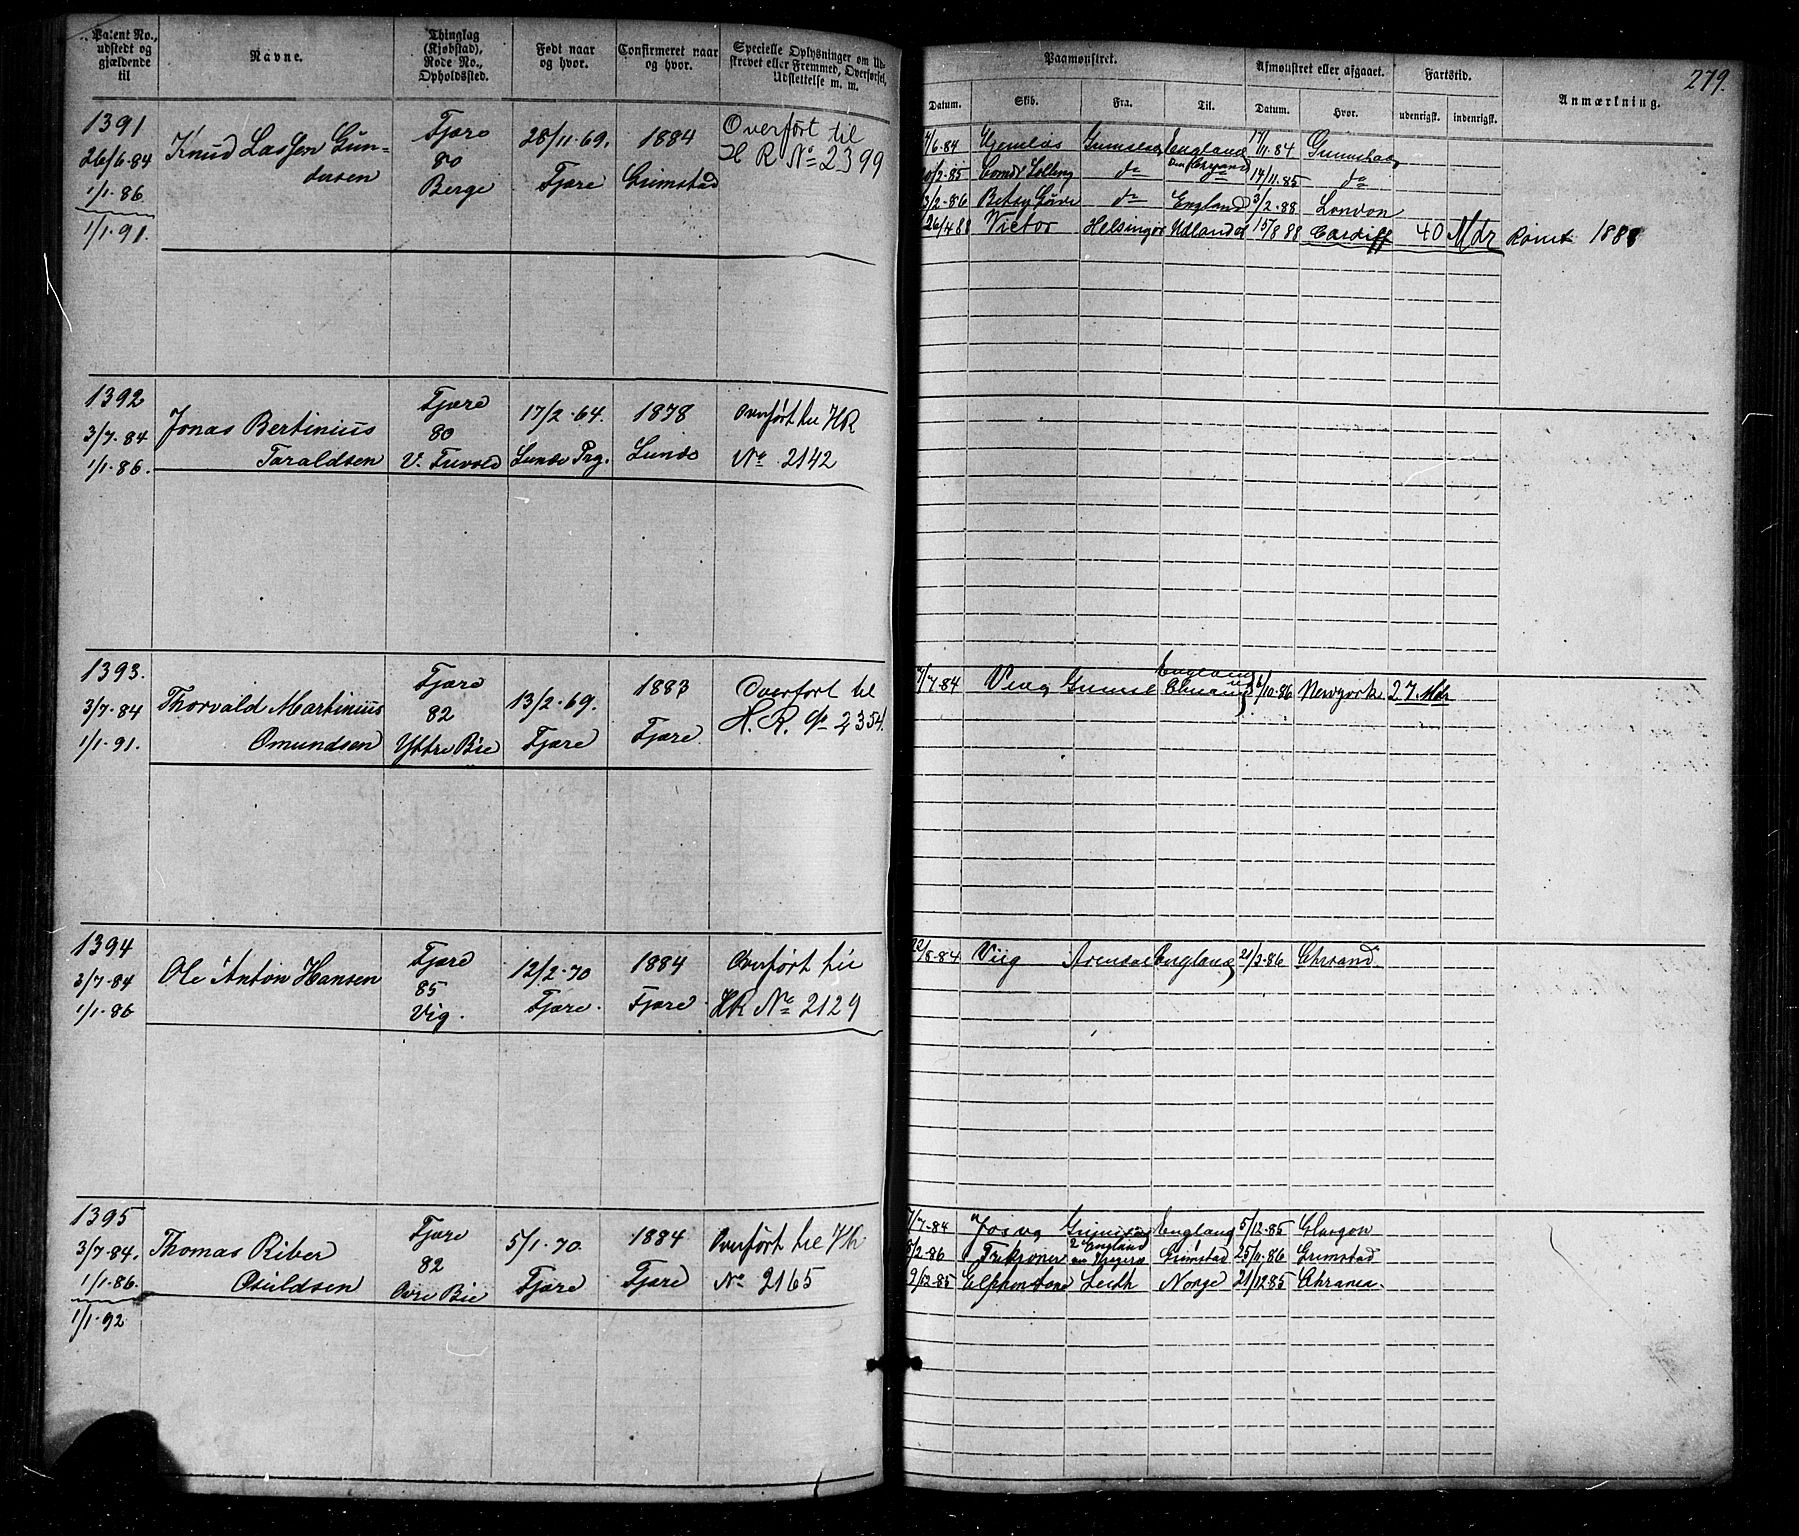 279.
Patent No., udstedt og gjældende til
Navne.
Thinglag (Kjøbstad), Rode No., Opholdssted.
Født naar og hvor.
Confirmeret naar og hvor.
Specielle Oplysninger om Udskrevet eller Fremmed, Overførsel, Udslettelse m. m.
Paamønstret.
Afmønstret eller afgaaet.
Fartstid.
Anmærkning.
Datum. Skib. Fra. Til. Datum. Hvor. udenrigsk. indenrigsk.
1391
26/6-84
1/1-86
1/1-91.
Knud Lassen Gun-
dersen
Fjære
80
Berge
28/11-69.
Fjære
1884
Grimstad
Overført til
H R No 2399
/6-84 England 17/11-84
/2-85 do do 14/11-85 do
3/2-86 Betsy do England 3/2-88 London
26/4 88 Victor Helsingør Udlandet 15/8 88 Cardiff 40 Mdr Rømt 1888
1392
3/7-84
1/1-86.
Jonas Bertinius
Taraldsen
Fjære
80
V.
17/2-64.
Lunde Prg.
1878
Lunde
Overført til HR
No 2142
1393.
3/7-84
1/1-91.
Thorvald Martinius
Omundsen
Fjære
82
Yttre Bie
13/2-69.
Fjære
1883
Fjære
Overfört til
H. R. No 2354.
England
/7-84 /10-86 Newyork 27 Mdr
1394
3/7-84
1/1-86
Ole Anton Hansen
Fjære
85
Vig.
12/2-70
Fjære.
1884
Fjære.
Overført til
HR No 2129
22/8-84 Viig Arendal England 21/3-86 Chrsand.
1395
3/7-84.
1/1-86.
1/1-92
Thomas Riber
Osuldsen
Fjære
82
Øvre Bie
5/1-70.
Fjære
1884
Fjære
Overført til HR
No 2165
7/7-84 Josva Grimstad England 5/12-85 Glasgow
/2-86 England Grimstad 25/11-86 Grimstad
9/12-85 Leith Norge 21/12 85 Chrania.